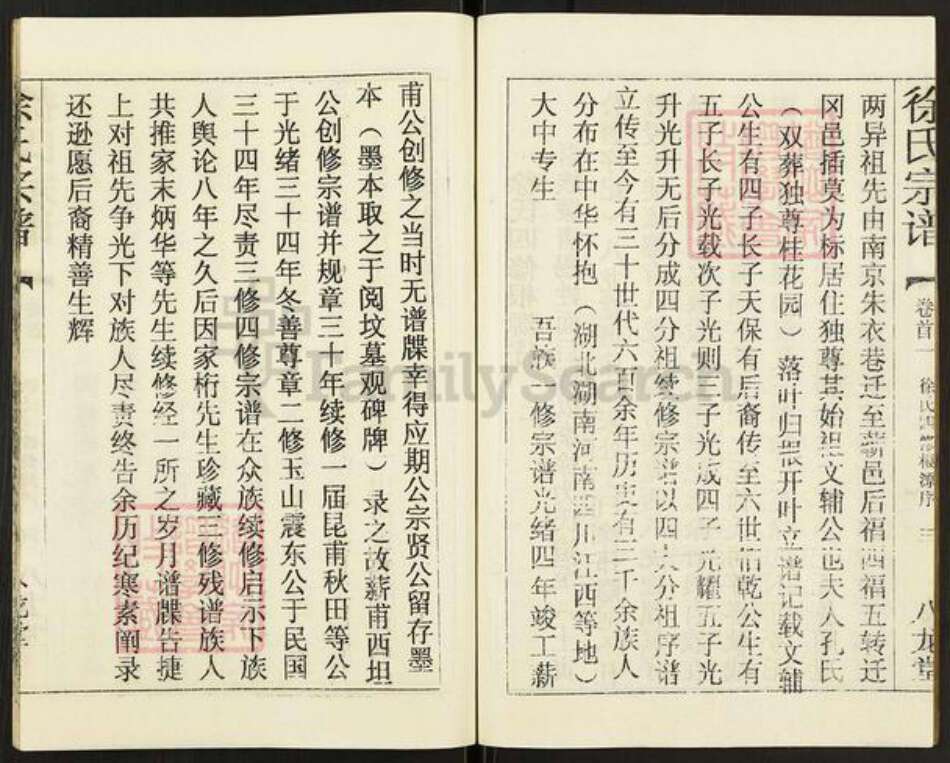 徐氏宗谱
卷首一
八龙堂
两异祖先由南京朱衣巷迁至蕲邑后福西福五转迁
冈邑插萸为标居住独尊其始祖文辅公也夫人孔氏
（双葬独尊桂花园）落叶归根开叶立谱记载文辅
公生有四子长子天保有后裔传至六世伯乾公生有
五子长子光载次子光则三子光成四子光耀五子光
升光升无后分成四分祖续修宗谱以四大分祖序谱
立传至今有三十世代六百余年历史有三千余族人
分布在中华怀抱（湖北湖南河南四川江西等地）
大中专生
吾族一修宗谱光绪四年竣工薪
甫公创修之当时无谱牒幸得应期公宗贤公留存墨
本（墨本取之于阅坟墓观碑牌）录之故薪甫西坦
公创修宗谱并规章三十年续修一届昆甫秋田等公
于光绪三十四年冬善尊章二修玉山震东公于民国
三十四年尽责三修四修宗谱在众族续修启示下族
人舆论八年之久后因家桁先生珍藏三修残谱族人
共推家末炳华等先生续修经一所之岁月谱牒告捷
上对祖先争光下对族人尽责终告余历纪寒素阐录
还逊愿后裔精善生辉
FamilySearch